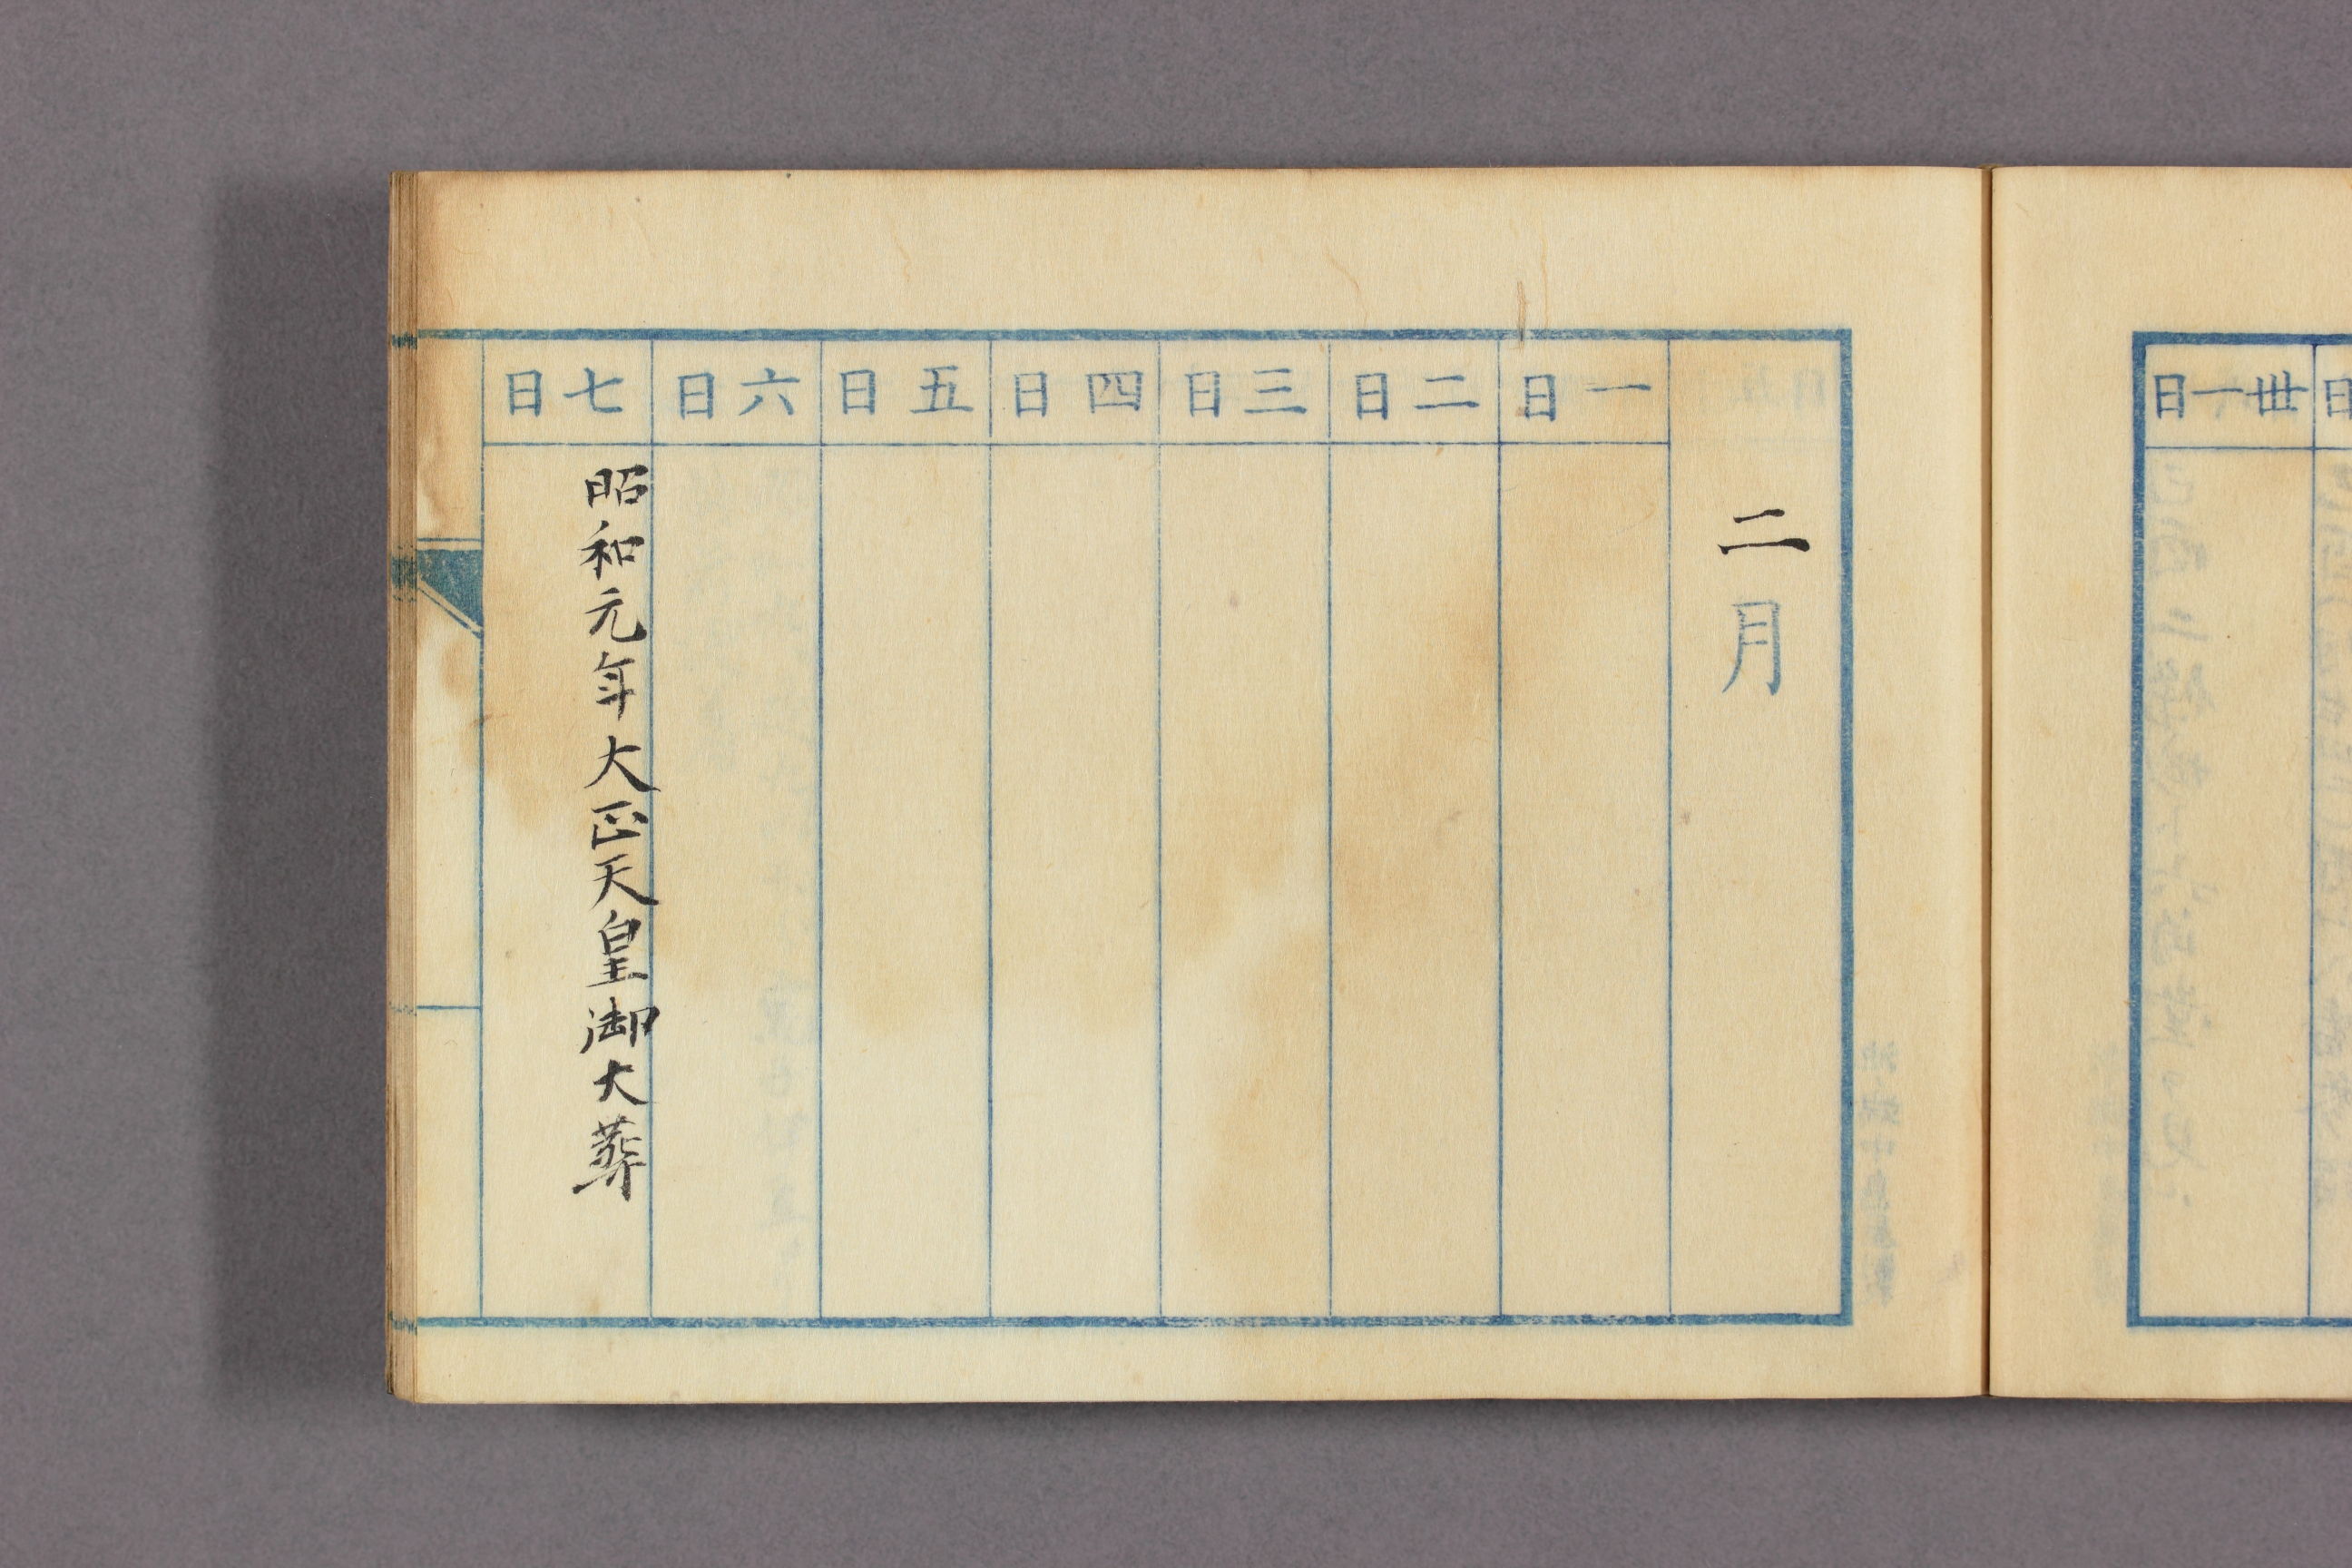 卅一日
二月
一日
二日
三日
四日
五日
六日
七日
昭和元年大正天皇御大葬